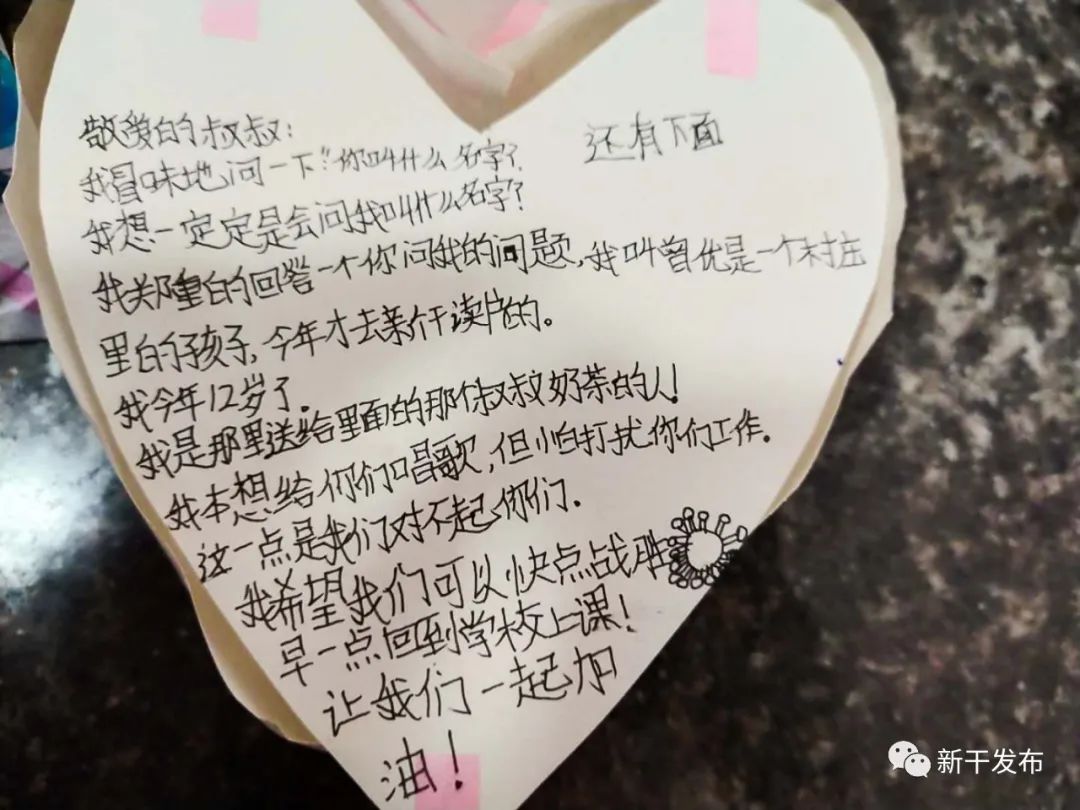 敬爱的叔叔：
还有下面
我冒味地问一下“你叫什么名字？
我想一定定是会问我叫什么名字？
我郑重的回答一个你问我的问题，我叫曾优是一个村庄
里的孩子，今年才去新干读户的。
我今年12岁了。
我是那里送给里面的那个叔叔奶茶的人！
我本想给你们唱歌，但怕打扰你们工作。
这一点是我们对不起你们。
我希望我们可以快点战胜
早一点回到学校上课！
让我们一起加
油！
新干发布